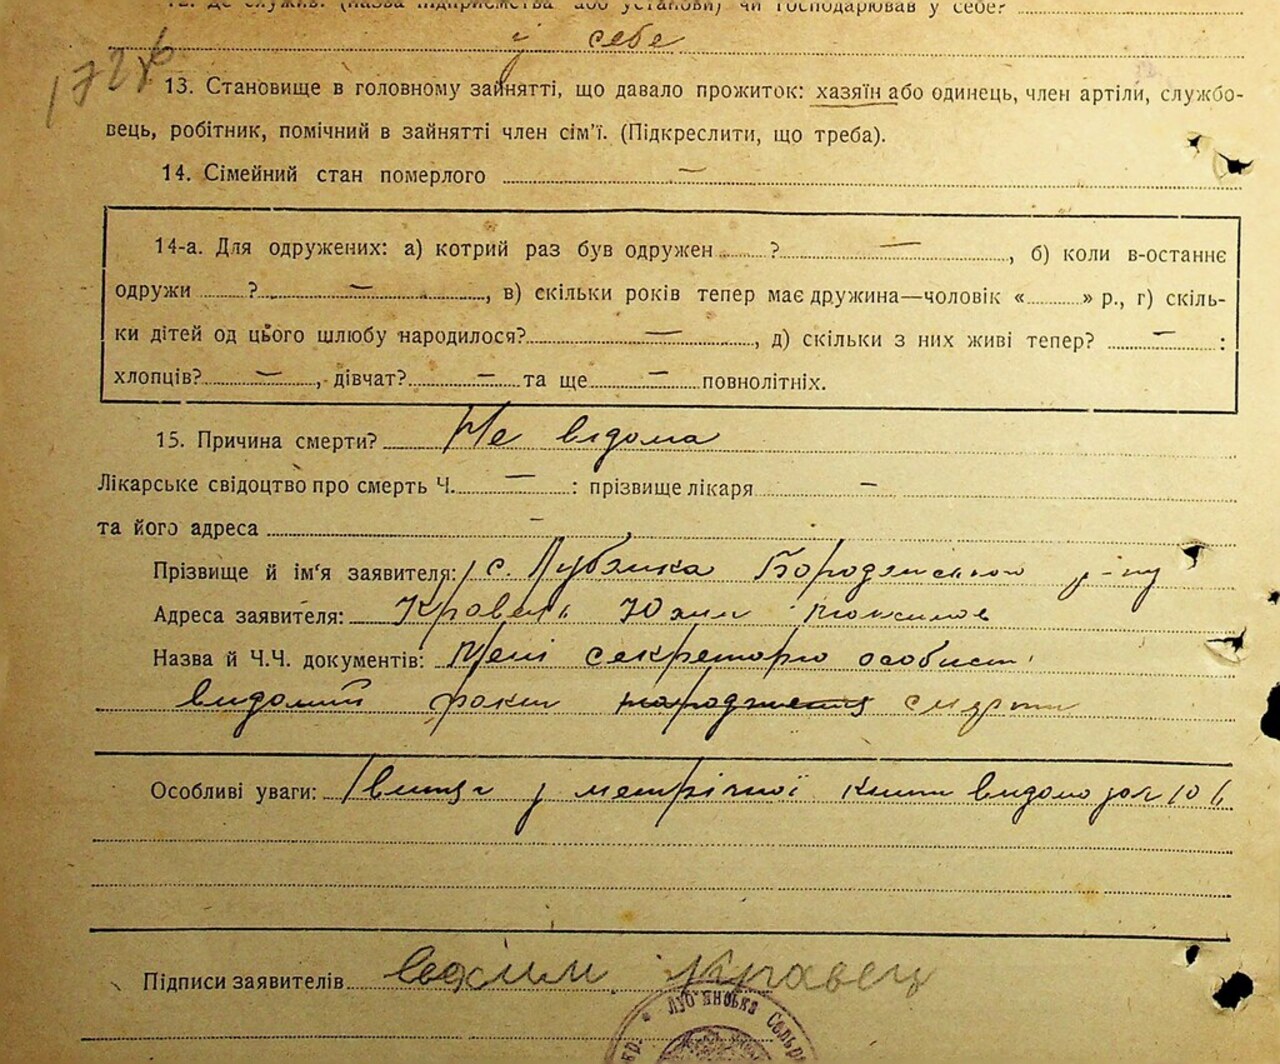 12. Де служив. (назва підприємства або установи) чи господарював у себе?
у себе
1726
13. Становище в головному зайнятті, що давало прожиток: хазяїн або одинець, член артілі, службо-
вець, робітник, помічний в зайнятті член сім'ї. (Підкреслити, що треба).
14. Сімейний стан померлого —
14-а. Для одружених: а) котрий раз був одружен ? —, б) коли в-останнє
одружи ? —, в) скільки років тепер має дружина—чоловік « » р., г) скіль-
ки дітей од цього шлюбу народилося? —, д) скільки з них живі тепер? — :
хлопців? —, дівчат? — та ще — повнолітніх.
15. Причина смерти? Не відома
Лікарське свідоцтво про смерть Ч. — : прізвище лікаря —
та його адреса —
Прізвище й ім'я заявителя: с. Луб'янка Бородянського р-ну
Адреса заявителя: Кравець Юхим
Назва й Ч.Ч. документів: Мені секретарю особисто
видомий факт народження смерти
Особливі уваги: у метричної книги видано
Підписи заявителів Юхим Кравець
Луб'янська Сельр